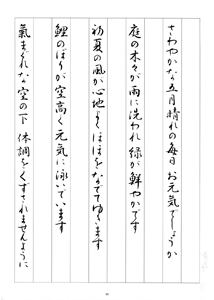 さわやかな五月晴れの毎日 お元気でしょうか
庭の木々が雨に洗われ 緑が鮮やかです
初夏の風が心地よくほほをなでてゆきます
鯉のぼりが空高く元気に泳いでいます
氣まぐれな空の下 体調をくずされませんように